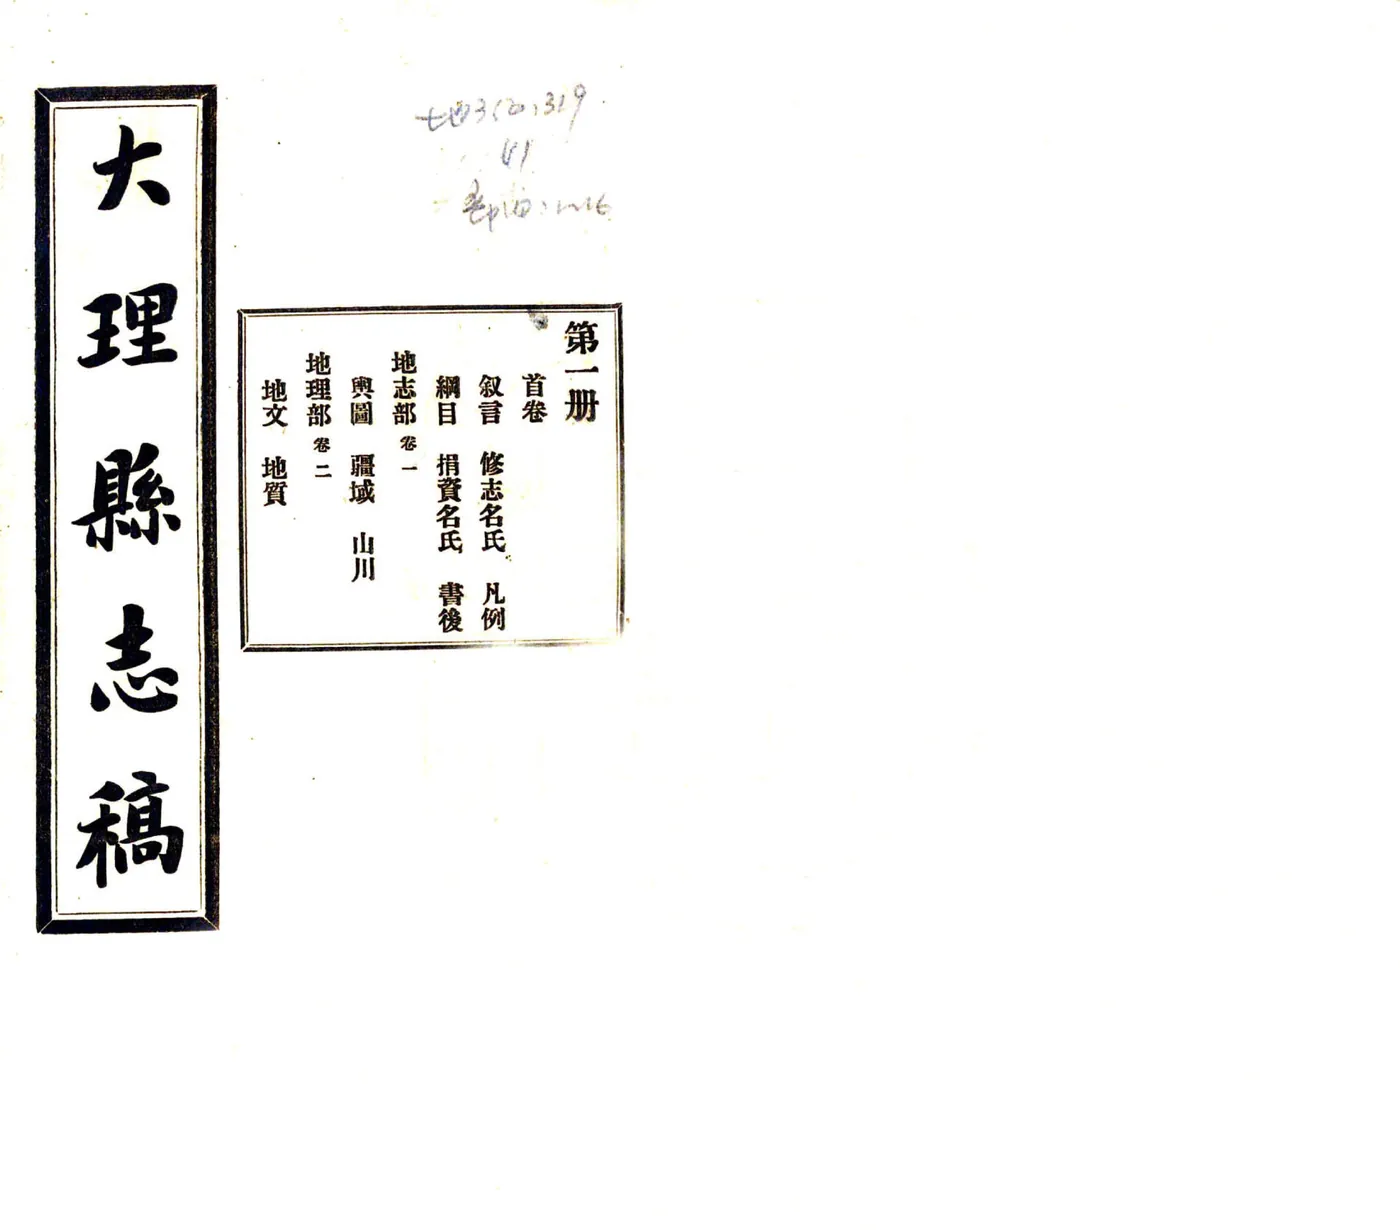 地350.319
V1
第一册
首卷
叙言 修志名氏 凡例
綱目 捐資名氏 書後
地志部 卷一
輿圖 疆域 山川
地理部 卷二
地文 地質
大理縣志稿